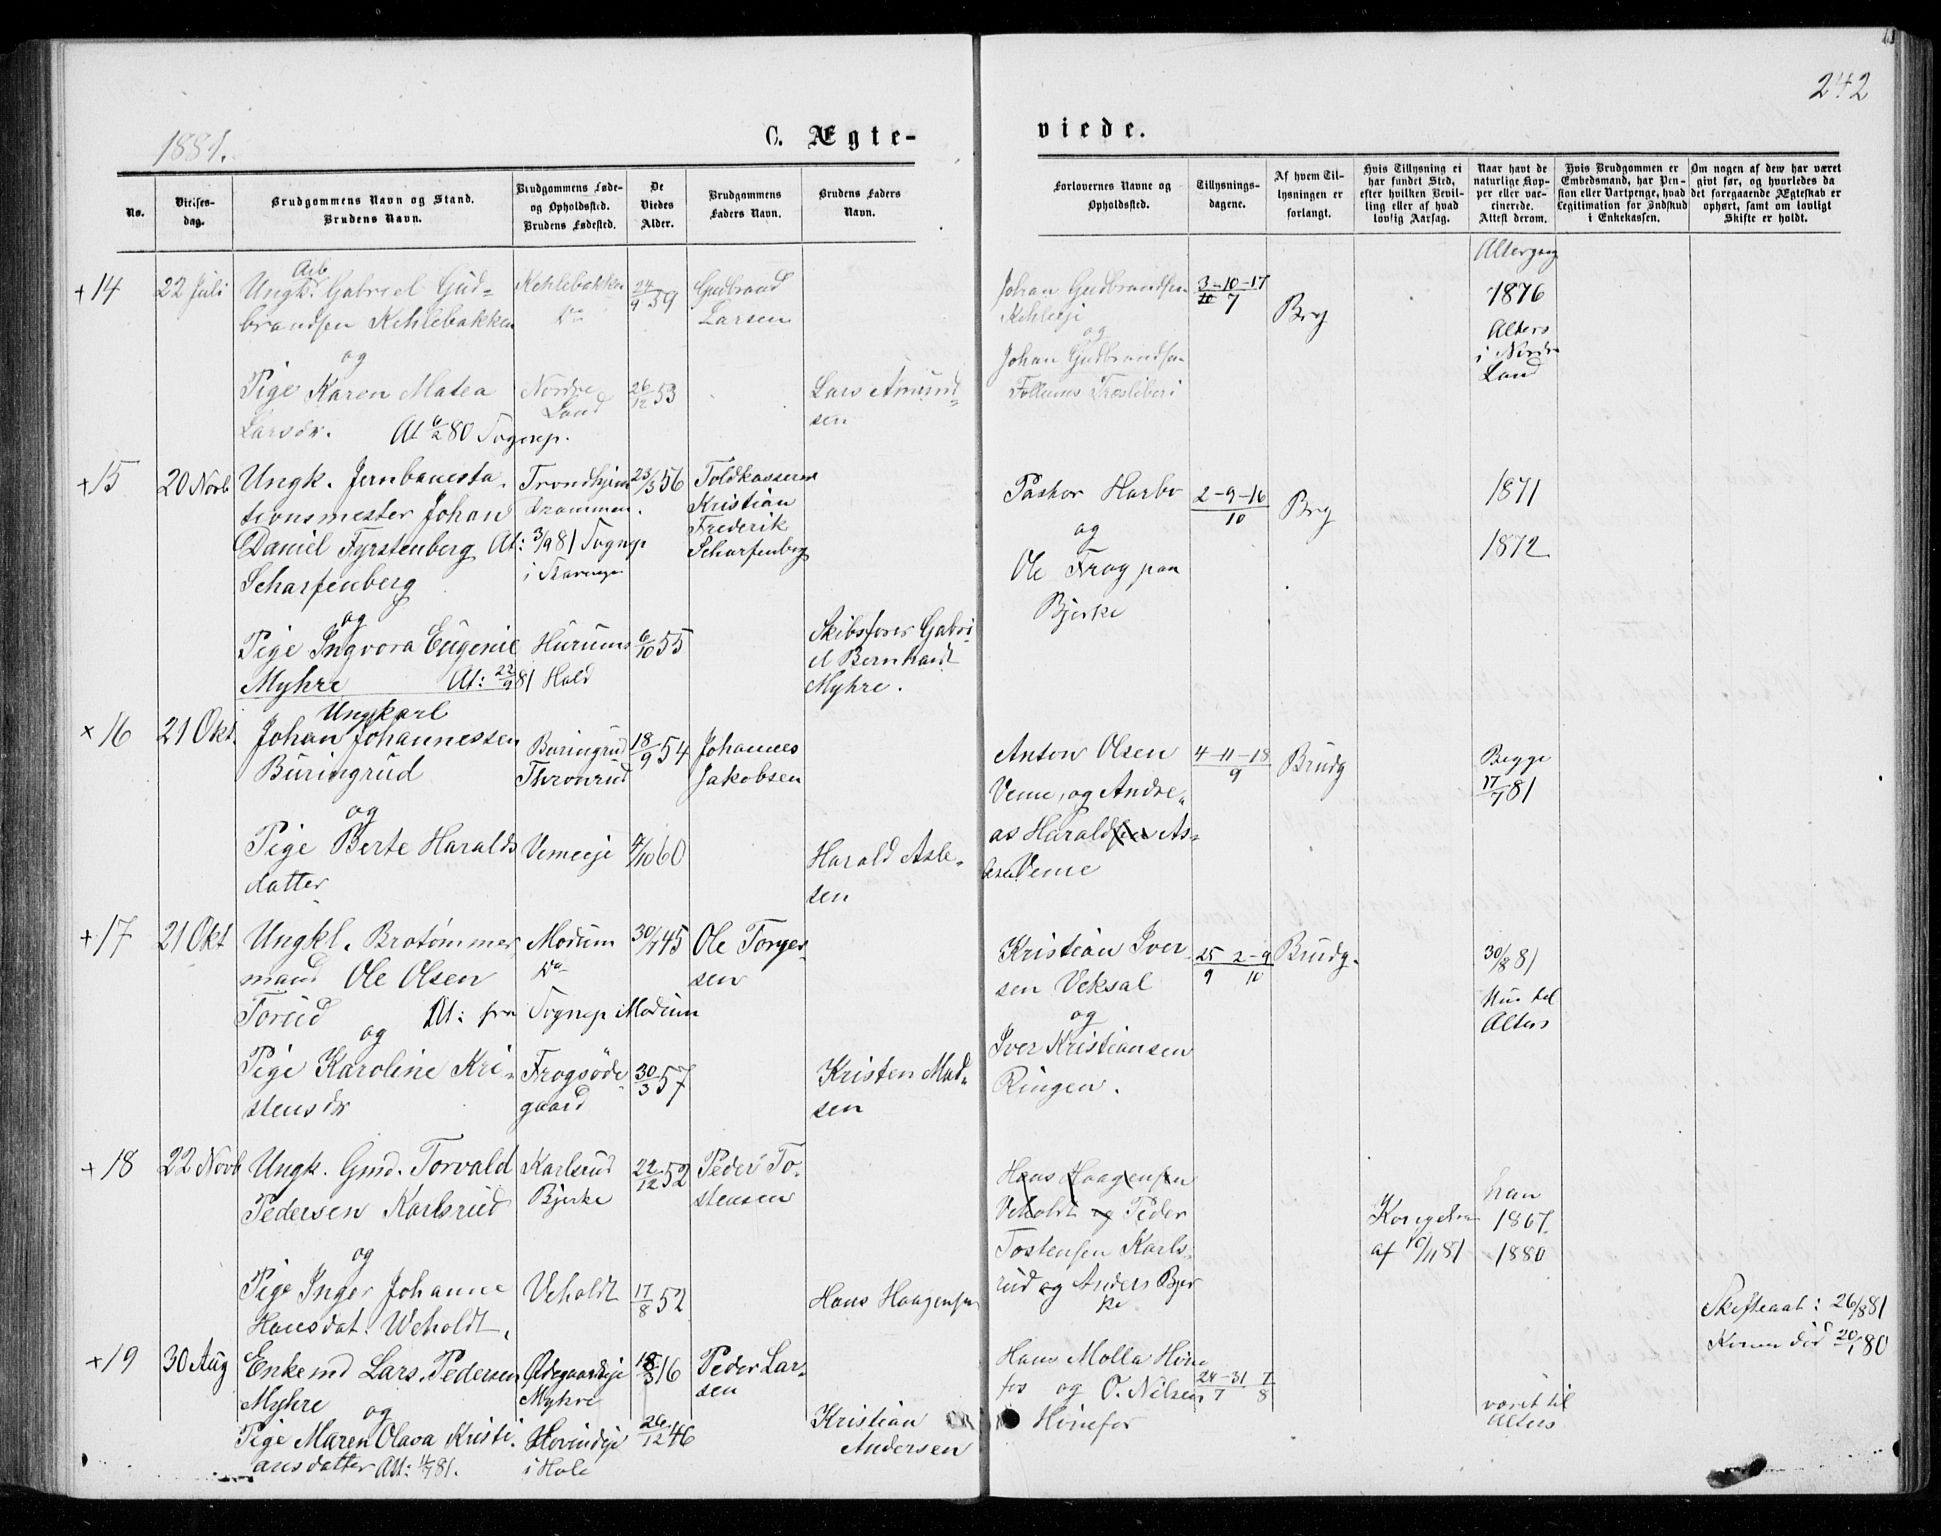 242
1881.
C. Ægte-
viede.
No.
Vielses-
dag.
Brudgommens Navn og Stand.
Brudens Navn.
Brudgommens Føde-
og Opholdssted.
Brudens Fødested.
De
Viedes
Alder.
Brudgommens
Faders Navn.
Brudens Faders
Navn.
Forlovernes Navne og
Opholdssted.
Tillysnings-
dagene.
Af hvem Til-
lysningen er
forlangt.
Hvis Tillysning ei
har fundet Sted,
efter hvilken Bevil-
ling eller af hvad
lovlig Aarsag.
Naar havt de
naturlige Kop-
per eller vac-
cinerede.
Attest derom.
Hvis Brudgommen er
Embedsmand, har Pen-
sion eller Vartpenge, hvad
Legitimation for Indskud
i Enkekassen.
Om nogen af dem har været
givt før, og hvorledes da
det foregaaende Ægteskab er
ophørt, samt om lovligt
Skifte er holdt.
+14
22 Juli
Arb.
Ungk. Gabriel Gud-
brandsen Kehlebakken
og
Pige Karen Matea
Larsdr. At 6/2 80 Sognep.
Kehlebakken
Do
Nordre
Land
24/9 59
26/12 53
Gudbrand
Larsen
Lars Amund-
sen
Johan Gudbrandsen
og
Johan Gudbrandsen
3-10-17
7
Brg
Altergang
1876
Alters
i Nordre
Land
+15
20 Novb
Ungk. Jernbanesta-
tionsmester Johan
Daniel Fyrstenberg At: 3/9 81 Sognep
Scharfenberg
og
Pige Ingvora Eugenie
Myhre At: 22/9 81
Trondhjem
Drammen.
Hurums
Hold
23/3 56
6/10 55
Toldkasserer
Kristian
Frederik
Scharfenberg
Skibsfører Gabri-
el Bernhardt
Myhre.
Pastor Harbo
og
Ole Frog paa
Bjerke
2-9-16
10
Brg
1871
1872
× 16
21 Okt.
Ungkarl
Johan Johannessen
Buringrud
og
Pige Berte Haralds
datter
Buringrud
Thronrud
Vemeeje
18/9 54
4/10 60
Johannes
Jakobsen
Harald Asle-
sen
Anton Olsen
Veme, og Andre-
as Haraldsen As-
Veme
4-11-18
9
Brudg
Begge
17/7 81
+17
21 Okt
Ungkl. Brotømmer
mand Ole Olsen
Torud At: fra Sognep Modum
og
Pige Karoline Kri-
stensdr
Modum
Do
Frogsøde
gaard
30/7 45
30/3 57
Ole Torger-
sen
Kristen Mad-
sen
Kristian Iver-
sen Veksal
og
Iver Kristiansen
Ringen.
25 2-9
9 10
Brudg.
30/8 81
Hun til
Alters
+ 18
22 Novb
Ungk. Gmd. Torvald
Pedersen Karlsrud
og
Pige Inger Johanne
Hansdat. Weholdt.
Karlsrud
Bjerke
Veholdt
22/12 52
17/8 52
Peder To-
stensen
Hans Haagensen
Hans Haagensen
Veholdt og Peder
Tostensen Karls-
rud og Anders Bjer
ke
af 10/11 81
han
1867
1880
+19
30 Aug
Enkemd Lars Pedersen
Myhre og
Pige Maren Olava Kristi-
ansdatter Att: 11/7 81.
Ødegaardseje
Myhre
Hovindeje
i Hole
18/3 16
26/12 46
Peder Lar-
sen
Kristian
Andersen
Hans Molla Høne
fos og O. Nilsen
Hønefos
24-31 7
7 8
været til
Alters
Skifteatt: 26/8 81
Konen død 20/1 80